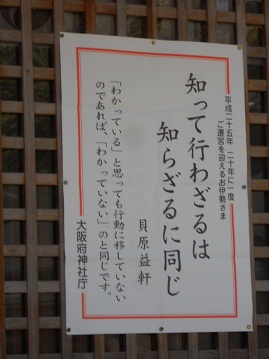 平成二十五年 二十年に一度
ご遷宮を迎えるお伊勢さま
知って行わざるは
知らざるに同じ
貝原益軒
「わかっている」と思っても行動に移していない
のであれば、「わかっていない」のと同じです。
大阪府神社庁